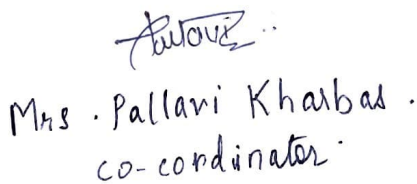 Mrs. Pallavi Kharbas.
co-cordinator.